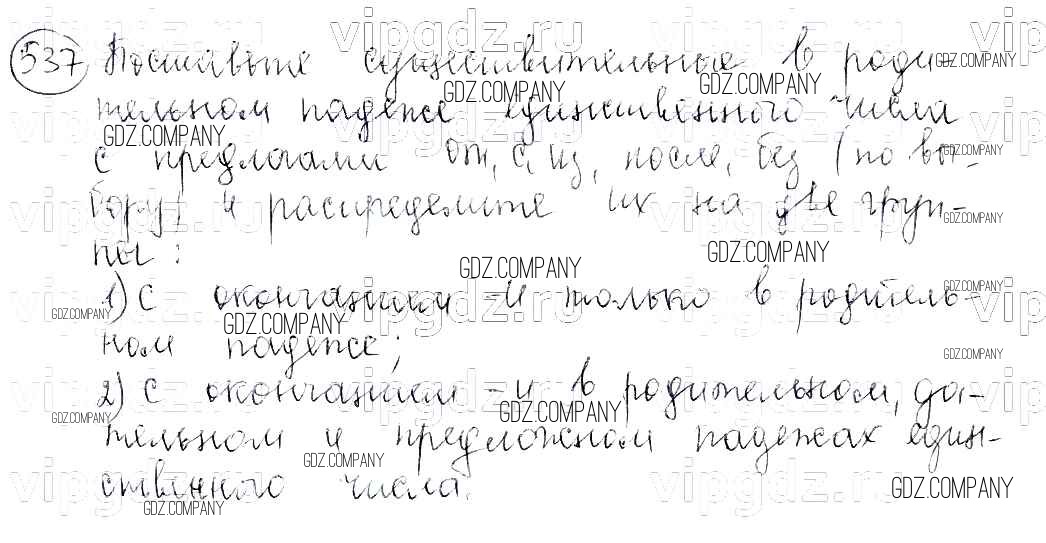 537 Поставьте существительные в роди-
тельном падеже единственного числа
с предлогами от, с, из, после, без (по вы-
бору) и распределите их на две груп-
пы:
1) с окончанием -и только в родитель-
ном падеже;
2) с окончанием -и в родительном, да-
тельном и предложном падежах един-
ственного числа.
vipgdz.ru
GDZ.COMPANY